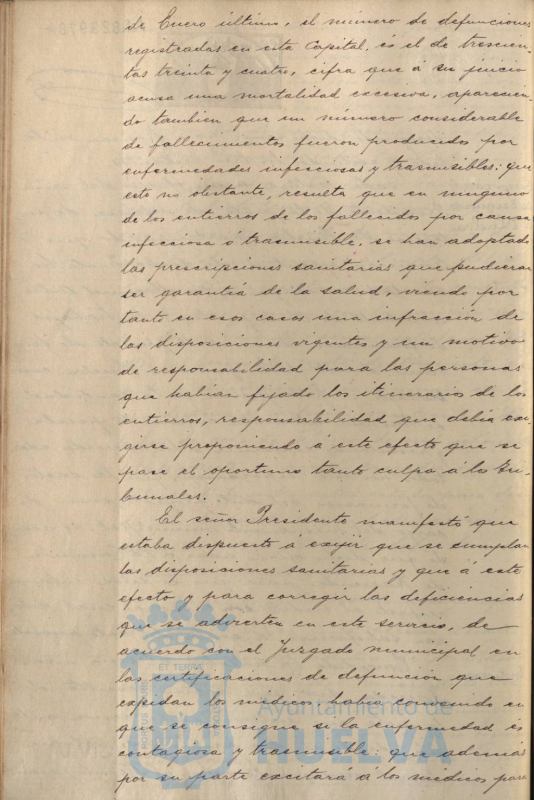 de Enero último, el número de defunciones
registradas en esta Capital, es el de trescien-
tas treinta y cuatro, cifra que á su juicio
acusa una mortalidad excesiva, aparecien-
do tambien que un número considerable
de fallecimientos fueron producidos por
enfermedades infecciosas y trasmisibles: que
esto no obstante, resulta que en ninguno
de los entierros de los fallecidos por causa
infecciosa ó trasmisible, se han adoptado
las prescripciones sanitarias que pudieran
ser garantiá de la salud, viendo por
tanto en esos casos una infracción de
las disposiciones vigentes y un motivo
de responsabilidad para las personas
que habian fijado los itinerarios de los
entierros, responsabilidad que debia exi-
girse proponiendo á este efecto que se
pase el oportuno tanto culpa á los tri-
bunales.
El señor Presidente manifestó que
estaba dispuesto á exijir que se cumplan
las disposiciones sanitarias y que á este
efecto y para corregir las deficiencias
que se advierten en este servicio, de
acuerdo con el Juzgado municipal en
las certificaciones de defunción que
expidan los médicos habia convenido en
que se consigne si la enfermedad es
contagiosa y trasmisible: que ademas
por su parte excitará á los médicos para
Ayuntamiento de
HUELVA